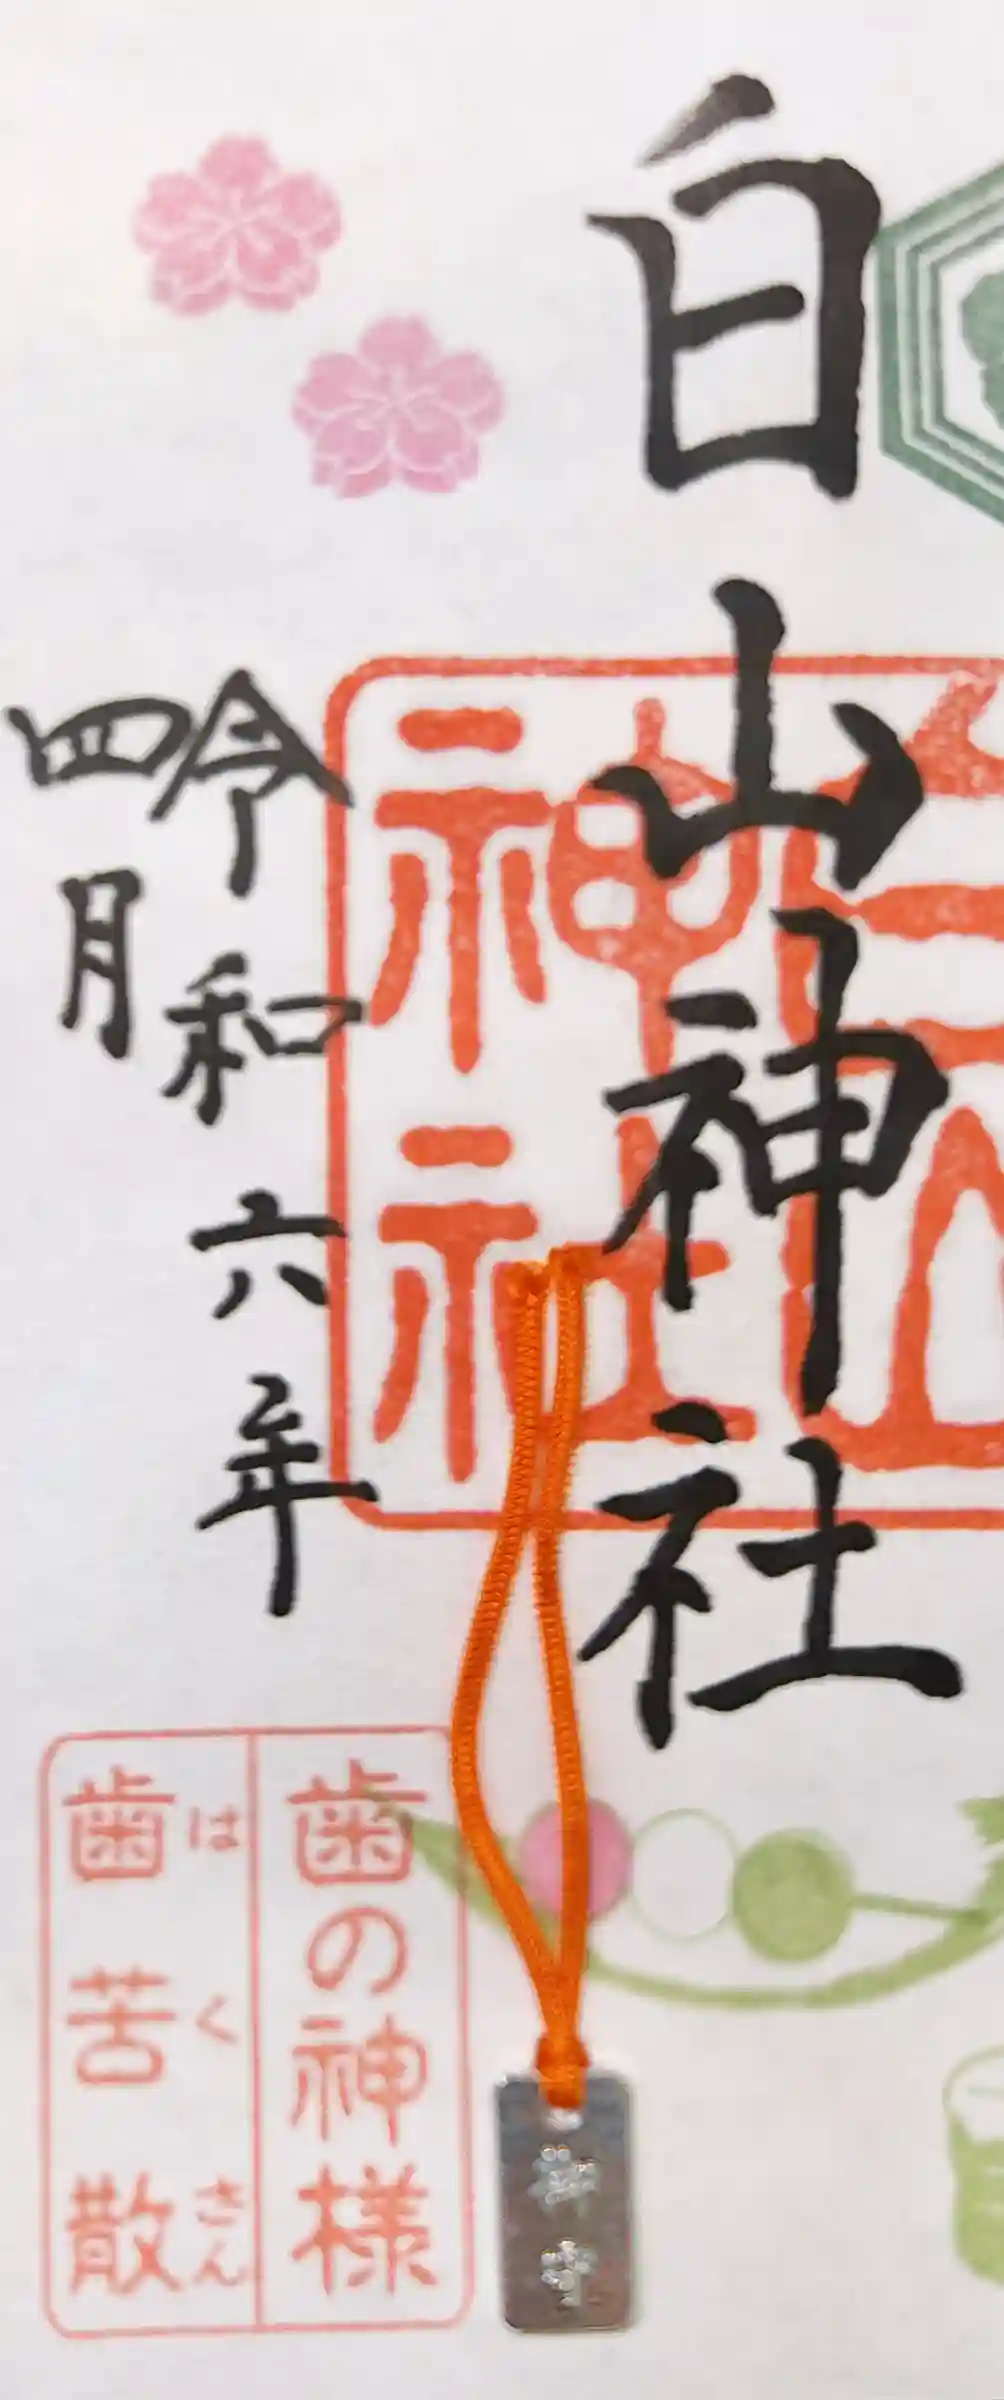 白山神社
令和六年
四月
神社
歯の神様
はくさん
歯苦散
御守